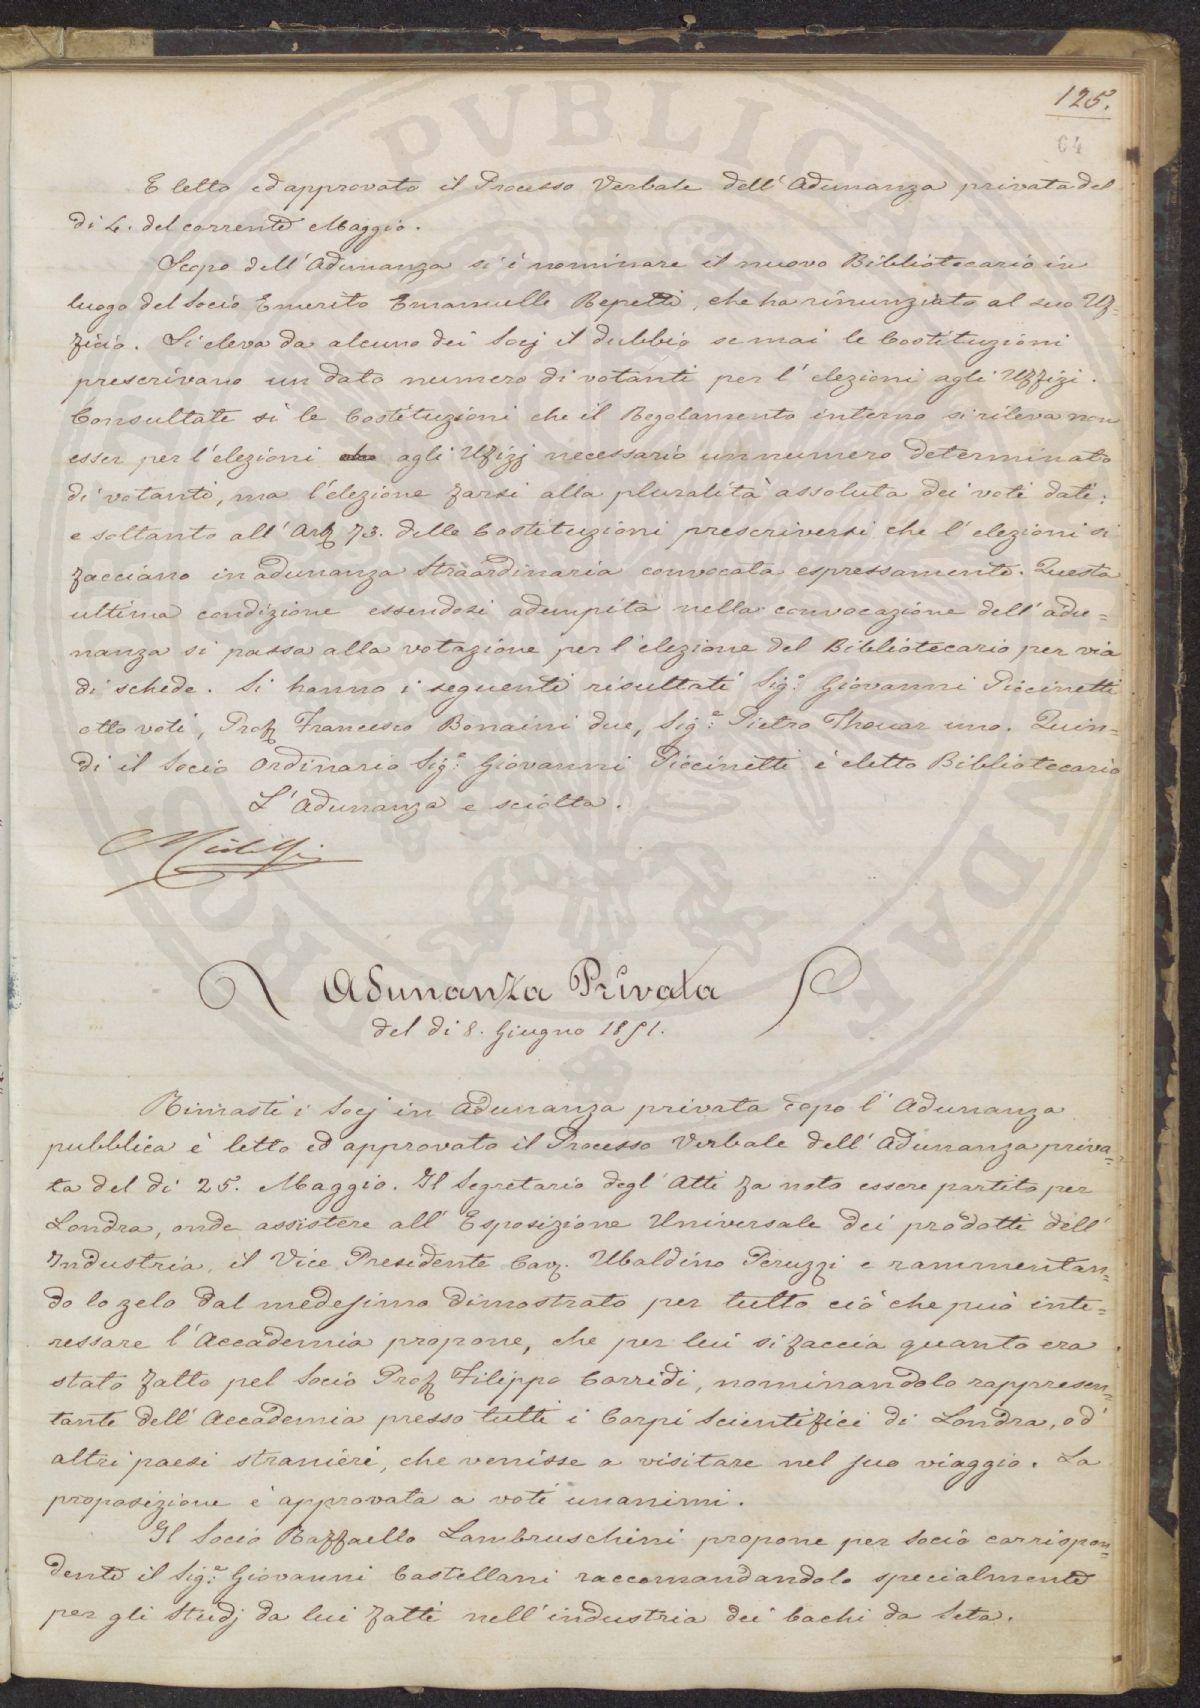 125.
64
E letto ed approvato il Processo Verbale dell'Adunanza privata del
di 4. del corrente Maggio.
Scopo dell'Adunanza si è nominare il nuovo Bibliotecario in
luogo del Socio Emerito Emanuelle Repetti, che ha rinunziato al suo Uf=
ficio. Si eleva da alcuno dei Socj il dubbio se mai le Costituzioni
prescrivano un dato numero di votanti per l'elezioni agli Uffizi.
Consultate sì le Costituzioni che il Regolamento interno si rileva non
esser per l'elezioni agli Ufizj necessario un numero determinato
di votanti, ma l'elezione farsi alla pluralità assoluta dei voti dati;
e soltanto all'Art. 73. delle Costituzioni prescriversi che l'elezioni si
facciano in adunanza Straordinaria convocata espressamente. Questa
ultima condizione essendosi adempita nella convocazione dell'adu=
nanza si passa alla votazione per l'elezione del Bibliotecario per via
di schede. Si hanno i seguenti risultati Sig.e Giovanni Piccinetti
otto voti, Prof. Francesco Bonaini due, Sig.e Pietro Thouar uno. Quin=
di il Socio Ordinario Sig.e Giovanni Piccinetti è eletto Bibliotecario
L'Adunanza e sciolta.
Adunanza Privata
del di 8. Giugno 1851.
Rimasti i Socj in adunanza privata dopo l'Adunanza
pubblica è letto ed approvato il Processo Verbale dell'Adunanza priva=
ta del di 25. Maggio. Il Segretario degl'Atti fa noto essere partito per
Londra, onde assistere all'Esposizione Universale dei prodotti dell'
Industria, il Vice Presidente Cav. Ubaldino Peruzzi e rammentan=
do lo zelo dal medesimo dimostrato per tutto ciò che può inte=
ressare l'Accademia propone, che per lui si faccia quanto era
stato fatto pel Socio Prof. Filippo Corridi, nominandolo rappresen=
tante dell'Accademia presso tutti i Corpi Scientifici di Londra, od'
altri paesi stranieri, che venisse a visitare nel suo viaggio. La
proposizione è approvata a voti unanimi.
Il Socio Raffaello Lambruschini propone per socio corrispon=
dente il Sig.e Giovanni Castellani raccomandandolo specialmente
per gli Studj da lui fatti nell'industria dei bachi da Seta.